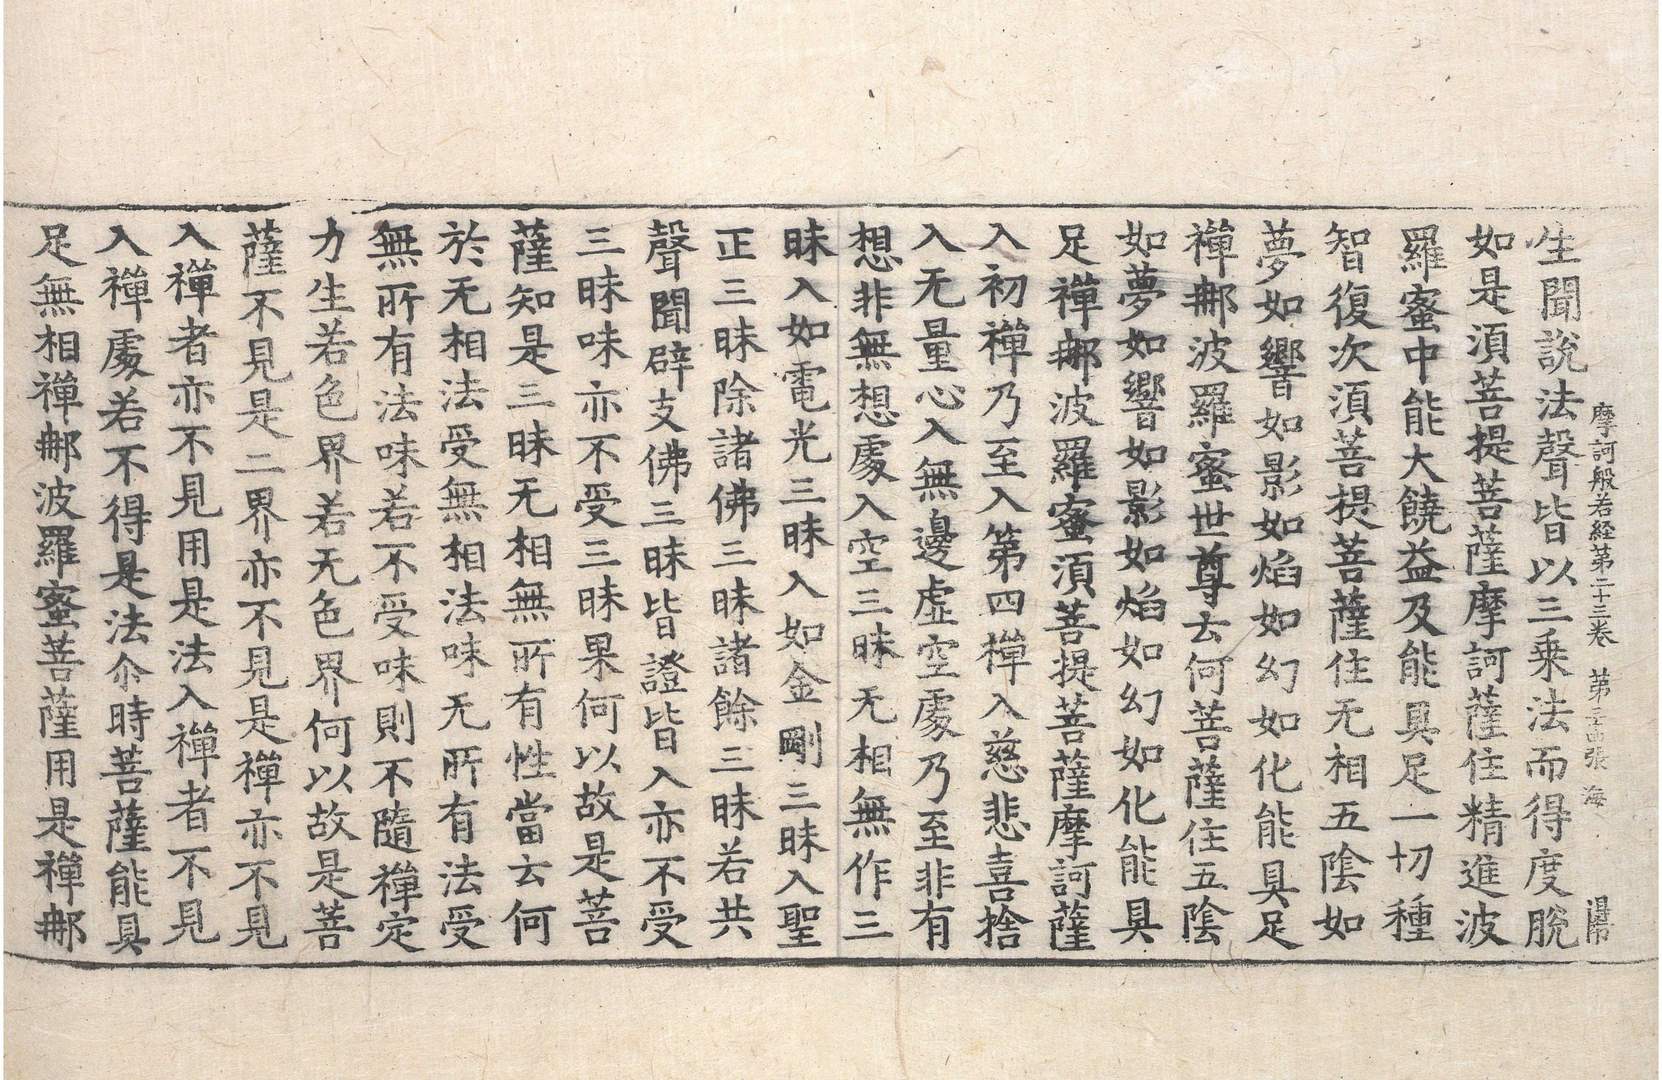 摩訶般若経第二十三卷 第二十四張 海
生聞說法聲皆以三乗法而得度脫
如是湏菩提菩薩摩訶薩住精進波
羅蜜中能大饒益及能具足一切種
智復次湏菩提菩薩住无相五陰如
夢如響如影如焰如幻如化能具足
禪𨙻波羅蜜世尊云何菩薩住五陰
如夢如響如影如焰如幻如化能具
足禪𨙻波羅蜜湏菩提菩薩摩訶薩
入初禪乃至入第四禪入慈悲喜捨
入无量心入無邊虛空處乃至非有
想非無想處入空三昧无相無作三
昧入如電光三昧入如金剛三昧入聖
正三昧除諸佛三昧諸餘三昧若共
聲聞辟支佛三昧皆證皆入亦不受
三昧味亦不受三昧果何以故是菩
薩知是三昧无相無所有性當云何
於无相法受無相法味无所有法受
無所有法味若不受味則不隨禪定
力生若色界若无色界何以故是菩
薩不見是二界亦不見是禪亦不見
入禪者亦不見用是法入禪者不見
入禪處若不得是法尒時菩薩能具
足無相禪𨙻波羅蜜菩薩用是禪𨙻